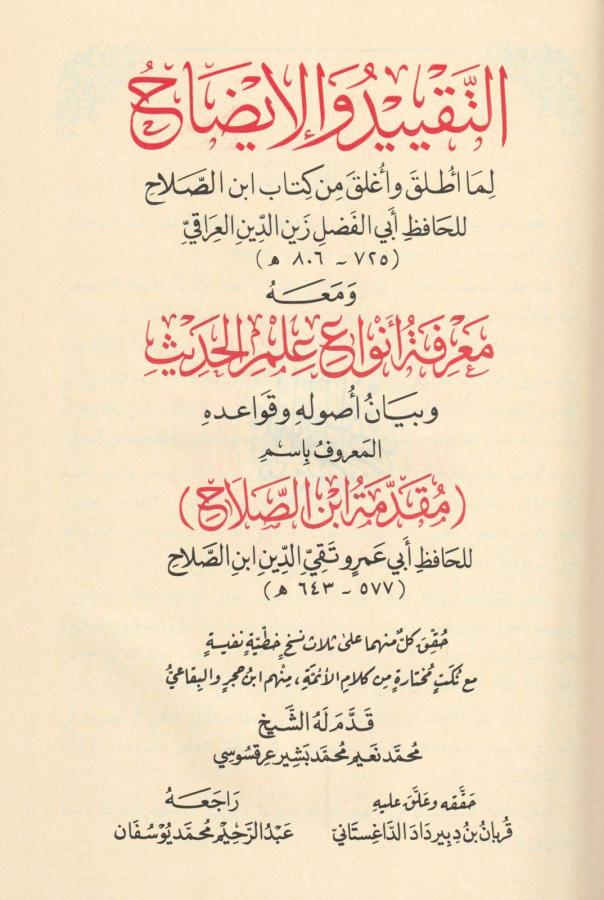 التَّقْيِيدُ وَالإِيضَاحُ
لِمَا أُطْلِقَ وَأُغْلِقَ مِن كِتَابِ ابنِ الصَّلَاحِ
للحَافِظِ أَبي الفَضْلِ زَينِ الدِّينِ العِرَاقيِّ
(٧٢٥ - ٨٠٦ هـ)
وَمَعَهُ
مَعْرِفَةُ أَنْوَاعِ عِلْمِ الحَدِيثِ
وبَيَانُ أُصُولِهِ وقَوَاعِدِهِ
المَعروفُ بِاسْمِ
(مُقَدِّمَةُ ابْنِ الصَّلَاحِ)
للحَافِظِ أَبي عَمرٍو تَقيِّ الدِّينِ ابنِ الصَّلَاحِ
(٥٧٧ - ٦٤٣ هـ)
حُقِّقَ كلٌّ منهما على ثلاث نسخٍ خطّيّةٍ نفيسةٍ
مع نُكَتٍ مُختارةٍ مِن كلامِ الأئمّةِ، مِنْهم ابنُ حجرٍ والبِقاعيُّ
قَدَّمَ لَهُ الشَّيخ
محُمَّد نَعيم محُمَّد بَشير عرقسُوسي
حَقَّقه وعَلَّقَ عليهِ
قُربانُ بنُ دِبِير دَادَ الدَّاغِستَانيّ
رَاجَعَهُ
عَبْدُ الرَّحِيْم محُمَّد يُوسُفَان